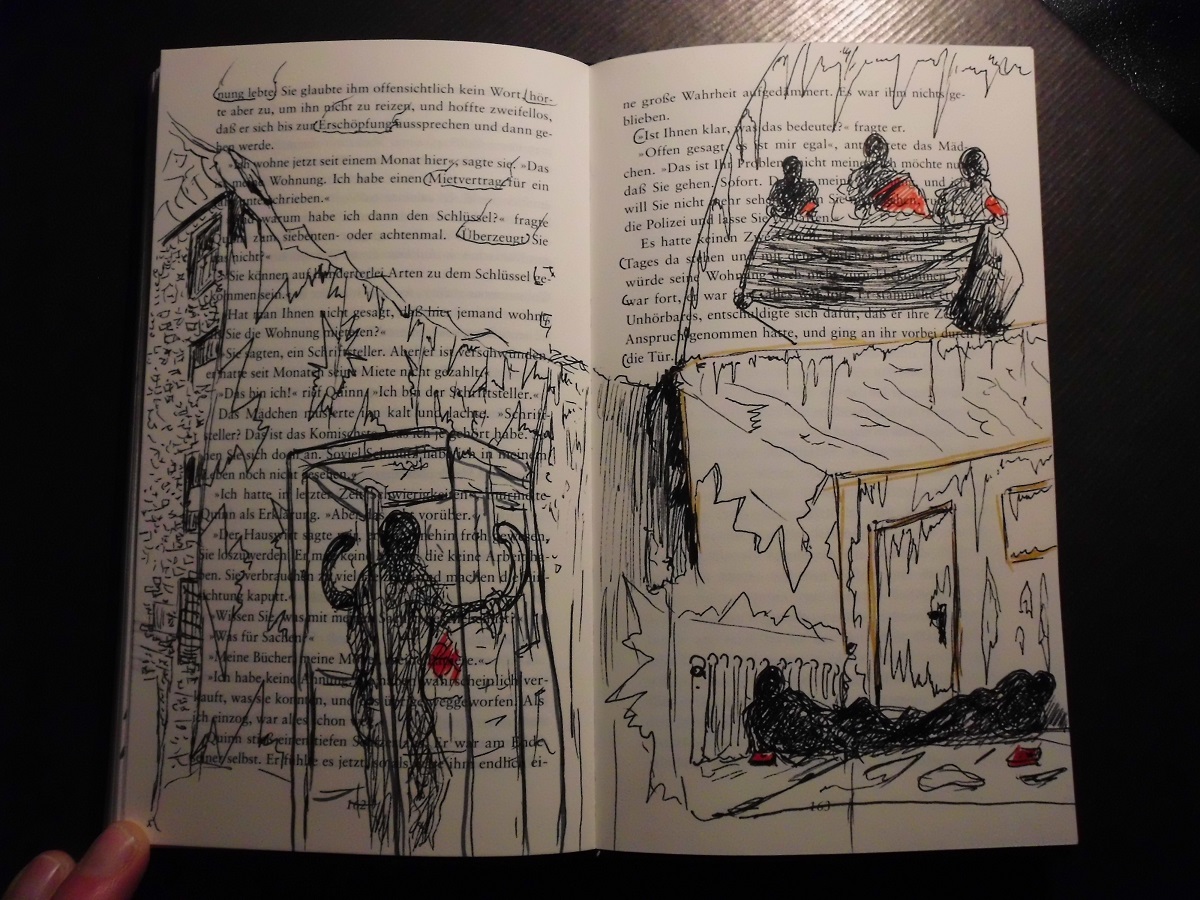 nung lebte. Sie glaubte ihm offensichtlich kein Wort, hör-
te aber zu, um ihn nicht zu reizen, und hoffte zweifellos,
daß er sich bis zur Erschöpfung aussprechen und dann ge-
hen werde.
»Ich wohne jetzt seit einem Monat hier«, sagte sie. »Das
ist meine Wohnung. Ich habe einen Mietvertrag für ein
unterschrieben.«
warum habe ich dann den Schlüssel?« fragte
Quinn zum siebenten- oder achtenmal. »Überzeugt Sie
das nicht?«
»Sie können auf hunderterlei Arten zu dem Schlüssel ge-
kommen sein.«
»Hat man Ihnen nicht gesagt, daß hier jemand wohnt,
Sie die Wohnung mieteten?«
»Sie sagten, ein Schriftsteller. Aber er ist verschwunden
er hatte seit Monaten seine Miete nicht gezahlt.«
»Das bin ich!« rief Quinn. »Ich bin der Schriftsteller.«
Das Mädchen musterte ihn kalt und lachte. »Schrift-
steller? Das ist das Komischste, was ich je gehört habe.
hen Sie sich doch an. Soviel Schmutz hab ich in meinem
Leben noch nicht gesehen.«
»Ich hatte in letzter Zeit Schwierigkeiten«, murmelte
Quinn als Erklärung. »Aber das geht vorüber.«
»Der Hauswirt sagte mir, er ohnehin froh gewesen,
Sie loszuwerden. Er mag keine die keine Arbeit ha-
ben. Sie verbrauchen zu viel und machen die Ein-
richtung kaputt.«
»Wissen Sie, was mit meinen Sachen
»Was für Sachen?«
»Meine Bücher, meine
»Ich habe keine Ahnung. haben wahrscheinlich ver-
kauft, was sie konnten, und das übrige weggeworfen. Als
ich einzog, war alles schon weg.«
Quinn stieß einen tiefen Seufzer aus. Er war am Ende
seiner selbst. Er fühlte es jetzt, so als hätte ihm endlich ei-
162
ne große Wahrheit aufgedämmert. Es war ihm nichts ge-
blieben.
»Ist Ihnen klar, was das bedeutet?« fragte er.
»Offen gesagt, es ist mir egal«, antwortete das Mäd-
chen. »Das ist Ihr Problem, nicht meines. Ich möchte nur,
daß Sie gehen. Sofort. Das ist meine und ich
will Sie nicht mehr sehen. Sie nicht gehen, rufe ich
die Polizei und lasse Sie verhaften.«
Es hatte keinen Zweck.
Tages da stehen und mit dem
würde seine Wohnung
war fort, er war fort, alles war fort. Er stammelte etwas
Unhörbares, entschuldigte sich dafür, daß er ihre Zeit in
Anspruch genommen hatte, und ging an ihr vorbei durch
die Tür.
163